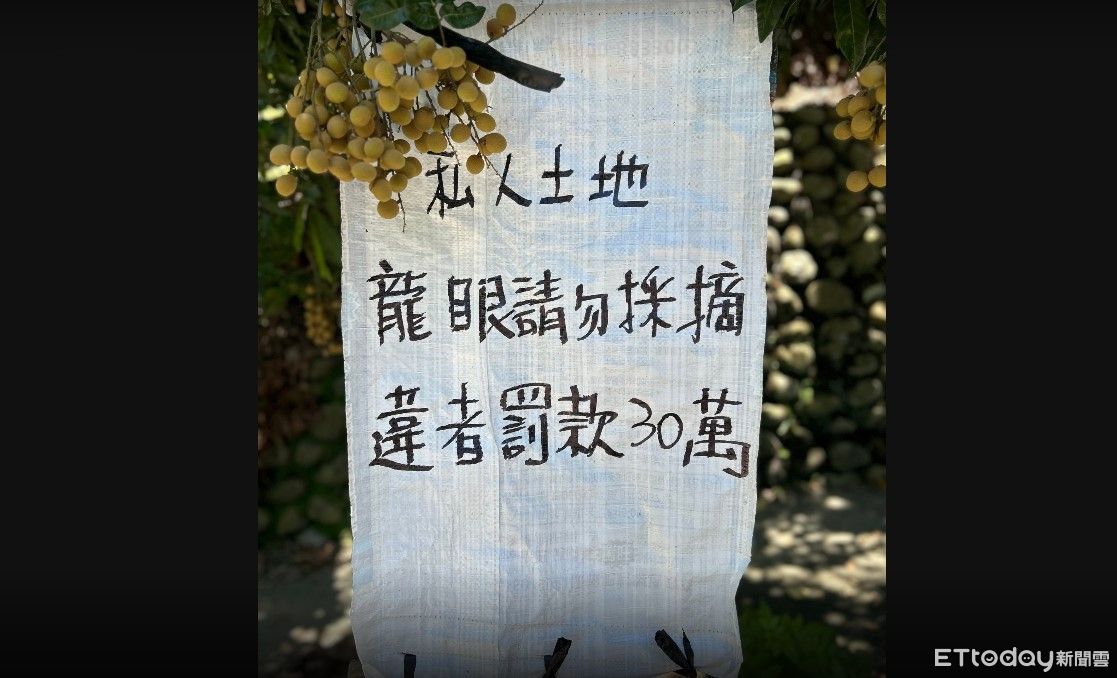 私人土地
龍眼請勿採摘
違者罰款30萬
ETtoday新聞雲